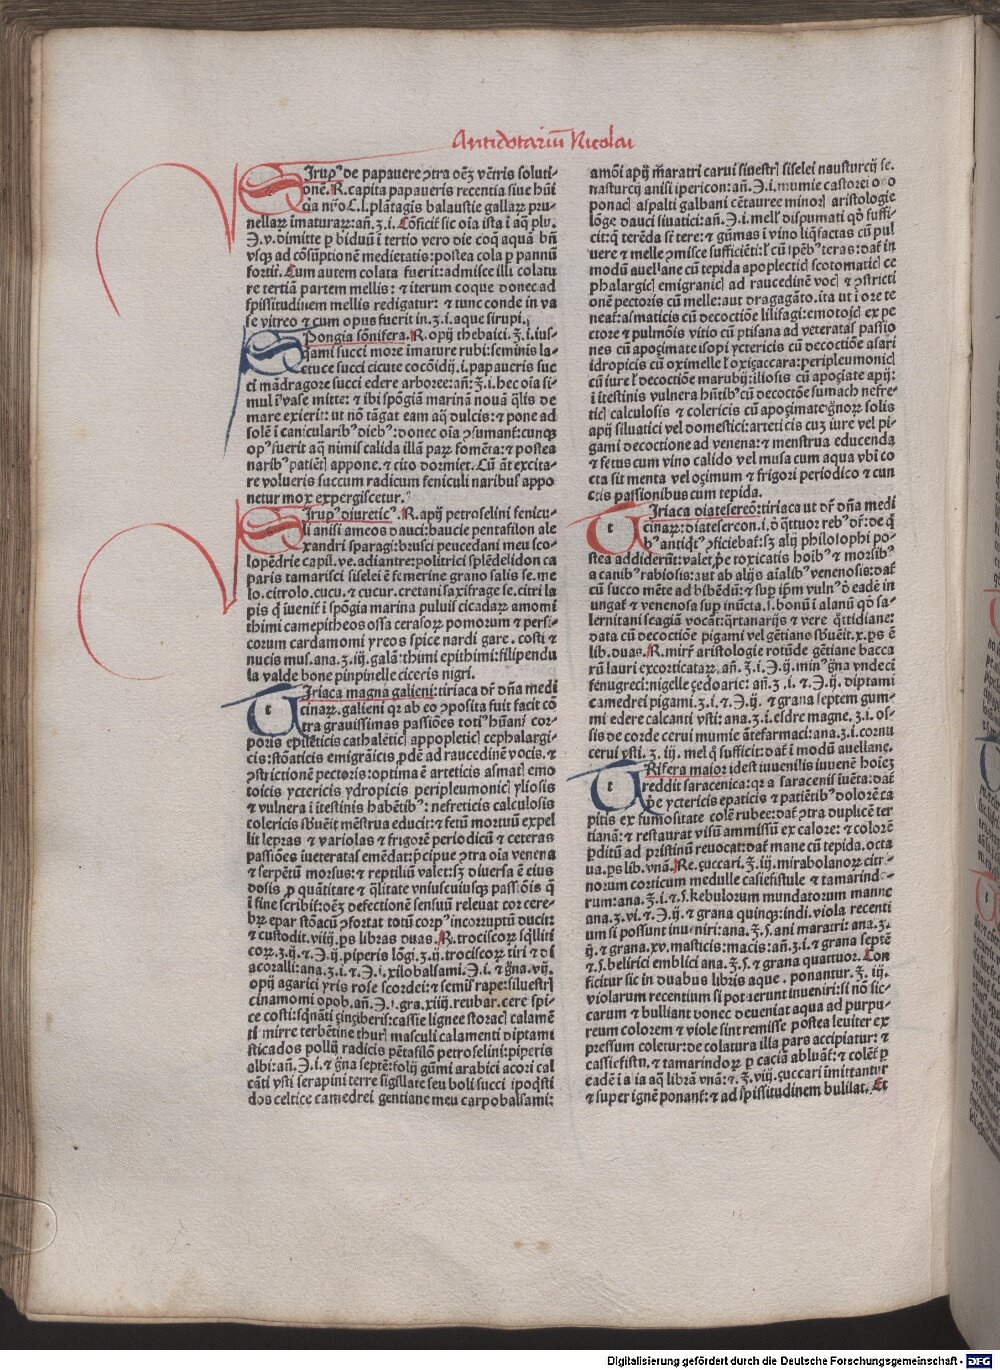 Antidotariū Nicolai
SIrupꝰ de papauere ꝯtra oēꝫ vētris soluti-
onē. R. capita papaueris recentia siue hūi
da nūo C.l. plātagis balaustie gallaꝝ pru-
nellaꝝ imaturaꝝ: añ. ʒ.i. Cōficiť sic oīa ista ī aq̄ pluv.
dimitte p biduū ī tertio vero die coq̄ aquā bñ
vsqꝫ ad cōsūptionē medietatis: postea cola p pannū
fortiť. Cum autem colata fuerit: admisce illi colatu
re tertiā partem mellis: ⁊ iterum coque donec ad
spissitudinem mellis redigatur: ⁊ tunc conde in va
se vitreo ⁊ cum opus fuerit in. ʒ.i. aque sirupi.
SPongia sōnifera. R. opij thebaici. ℥.i. ius-
qiami succi more imature rubi: seminis la-
ctuce succi cicute cocōidij. i. papaueris suc
ci mādragore succi edere arboree: añ: ℥.i. hec oīa si-
mul ī vase mitte: ⁊ ibi spōgiā marinā nouā q̄lis de
mare exierit: ut nō tāgat eam aq̄ dulcis: ⁊ pone ad
solē ī canicularibꝰ diebꝰ: donec oīa ꝯsumant̄: cumqꝫ
opꝰ fuerit aq̄ nimis calida illā paꝝ fomēta: ⁊ postea
naribꝰ patiētꝭ appone. ⁊ cito dormiet. Cū āt excita-
re volueris succum radicum feniculi naribus appo
netur mox expergiscetur.
SIrupꝰ diureticꝰ. R. apij petroselini fenicu-
li anisi ameos dauci: baucie pentafilon ale
xandri sparagi: brusci peucedani meu sco-
lopēdrie capil. ve. adiantre: politrici splēdelidon ca
paris tamarisci siselei ē femerine grano salis se. me
lo. citrolo. cucu. ⁊ cucur. cretani saxifrage se. citri la
pis q̄ iuenit̄ ī spōgia marina puluis cicadaꝝ amomi
thimi camepitheos ossa cerasoꝝ pomorum ⁊ persi-
corum cardamomi yreos spice nardi gare. costi ⁊
nucis mus. ana. ʒ.iij. galā: thimi epithimi: filipendu
la valde bone pinpinelle ciceris nigri.
TIriaca magna galieni: tiriaca dr̄ dn̄a medi
cinaꝝ. galieni qr ab eo ꝯposita fuit facit cō
tra grauissimas passiōes totiꝰ hūani cor-
poris epilēticis cathalēticꝭ appopleticꝭ cephalargi-
cis: stōaticis emigrāicis ꝓdē ad raucedinē vocis. ⁊
ꝯstrictionē pectoris: optima ē arteticis asmatꝭ emo
toicis yctericis ydropicis peripleumonicꝭ yliosis
⁊ vulnera ī ītestinis habētibꝰ: nefreticis calculosis
colericis sbuēit mēstrua educit: ⁊ fetū mortuū expel
lit lepras ⁊ variolas ⁊ frigorē periodicū ⁊ ceteras
passiōes iueteratas emēdat: p̄cipue ꝯtra oīa venena
⁊ serpētū morsus: ⁊ reptiliū valet: sꝫ diuersa ē eius
dosis ꝓ quātitate ⁊ q̄litate vniuscuiusqꝫ passiōis q̄
ī fine scribit̄: oēꝫ defectionē sensuū releuat cor cere-
bꝝ epar stōacū ꝯfortat totū corpꝰ incorruptū ducit:
⁊ custodit. viiij. ps libras duas. R. trociscoꝝ sq̄lliti
coꝝ. ʒ.ij. ⁊. Э.ij. piperis lōgi. ʒ.ij. trociscoꝝ tiri ⁊ di
acoralli: ana. ʒ.i. ⁊. Э.i. xilobalsami. Э.i. ⁊ gña. vij.
opij agarici yris rose scordei: ⁊ semis rape: siluestrꝭ
cinamomi opob. añ. Э.i. gra. xiiij. reubar. cere spi-
ce costi: sq̄nāti çinçiberis: cassie lignee storacꝭ calamē
ti mirre terbētine thurꝭ masculi calamenti diptami
sticados pollij radicis pētafilō petroselini: piperis
albi: añ. Э.i. ⁊ gña septē: folij gūmi arabici acori cal
cāti vsti serapini terre sigillate seu boli succi ipoq̄sti
dos celtice camedrei gentiane meu carpobalsami:
amōi apij m̄aratri carui siuestrꝭ siselei nausturcij se.
nasturcij anisi ipericon: añ. Э.i. mumie castorei o o
ponacꝭ aspalti galbani cētauree minorꝭ aristologie
lōge dauci siuatici: añ. Э.i. mellꝭ dispumati qd̄ suffi
cit: q̄ terēda sē tere: ⁊ gūmas ī vino liq̄factas cū pul
uere ⁊ melle ꝯmisce sufficiēti: l̄ cū spēbꝰ teras: daťin
modū auellane cū tepida apoplecticꝭ scotomaticꝭ ce
phalargicꝭ emigranicꝭ ad raucedinē vocꝭ ⁊ ꝯstricti
onē pectoris cū melle: aut dragagāto. ita ut ī ore te
neat̄: asmaticis cū decoctiōe lilifagi: emotoicꝭ ex pe
ctore ⁊ pulmōis vitio cū ptisana ad veteratas passio
nes cū apoçimate isopi yctericis cū decoctiōe asari
idropicis cū oximelle l̄ oxiçaccara: peripleumonicꝭ
cū iure l̄ decoctiōe marubij: iliosis cū apoçiate apij:
ī ītestinis vulnera hn̄tibꝰ cū decoctiōe sumach nefre-
ticꝭ calculosis ⁊ colericis cū apoçimate gñoꝝ solis
apij siluatici vel domestici: arteticis cuꝫ iure vel pi-
gami decoctione ad venena: ⁊ menstrua educenda
⁊ fetus cum vino calido vel musa cum aqua vbi co
cta sit menta vel oçimum ⁊ frigori periodico ⁊ cun
ctis passionibus cum tepida.
TIriaca diatesereō: tiriaca ut dr̄ dn̄a medi
cinaꝝ: diatesercon. i. ð q̄ttuor rebꝰ dr̄: de q̄
bꝰ antiq̄tꝰ ꝯficiebať: sꝫ alij philosophi po-
stea addiderūt: valet p̄e toxicatis hoībꝰ ⁊ morsibꝰ
a canibꝰ rabiosis: aut ab alijs aīalibꝰ venenosis: dať
cū succo mēte ad bibēdū: ⁊ sup ipm vulnꝰ ð eadē in
ungať ⁊ venenosa sup inūcta. s. bonū ī alanū qð sa-
lernitani scagiā vocāt: q̄rtanarijs ⁊ vere q̄tidiane:
data cū decoctiōe pigami vel gētiane sbuēit. x. ps ē
lib. duas. R. mirꝭ aristologie rotūde gētiane bacca
rū lauri excorticataꝝ. añ. ʒ.i. Э.ij. minꝰ gña vndeci
fenugreci: nigelle çedoarie: añ. ʒ.i. ⁊. Э.ij. diptami
camedrei pigami. ʒ.i. ⁊. Э.ij. ⁊ grana septem gum-
mi edere calcanti vsti: ana. ʒ.i. esdre magne. ʒ.i. os-
sis de corde cerui mumie ātefarmaci: ana. ʒ.i. cornu
cerui vsti. ʒ.iij. mel q̄ sufficit: daťī modū auellane.
TRifera maior id est iuuenilis iuuenē hoieꝫ
reddit saracenica: qr a saracenis iuēta: daťi
p̄e yctericis epaticis ⁊ patiētibꝰ dolorē ca
pitis ex fumositate colē rubee: dať ꝯtra duplicē ter
tianā: ⁊ restaurat visū ammissū ex calore: ⁊ colorē
ꝑditū ad pristinū reuocat: dať mane cū tepida. octa
ua. ps lib. vnā. Re. çuccari. ℥.iij. mirabolanoꝝ citri-
norum corticum medulle casiefistule ⁊ tamarindo-
rum: ana. ℥.i. ⁊ s. kebulorum mundatorum manne
ana. ʒ.vi. ⁊. Э.ij. ⁊ grana quinqꝫ: indi. viola recenti
um si possunt inueniri: ana. ℥.s. ani maratri: ana. ʒ.
ij. ⁊ grana. xv. masticis: macis: añ. ʒ.i. ⁊ grana septē
⁊ s. belirici emblici ana. ℥.s. ⁊ grana quattuor. Con
ficitur sic in duabus libris aque. ponantur. ℥.iij.
violarum recentium si poterunt inueniri: si nō sic-
carum ⁊ bulliant donec deueniat aqua ad purpu-
reum colorem ⁊ viole sint remisse postea leuiter ex
pressum coletur: de colatura illa pars accipiatur: ⁊
cassiefistn. ⁊ tamarindoꝝ p caciā abluāť: ⁊ colēť p
eadē ī alia aq̄ librā vnā: ⁊. ℥.viij. çuccari imittantur
⁊ super ignē ponanť: ⁊ ad spissitudinem bulliat. Et
Digitalisierung gefördert durch die Deutsche Forschungsgemeinschaft - DFG